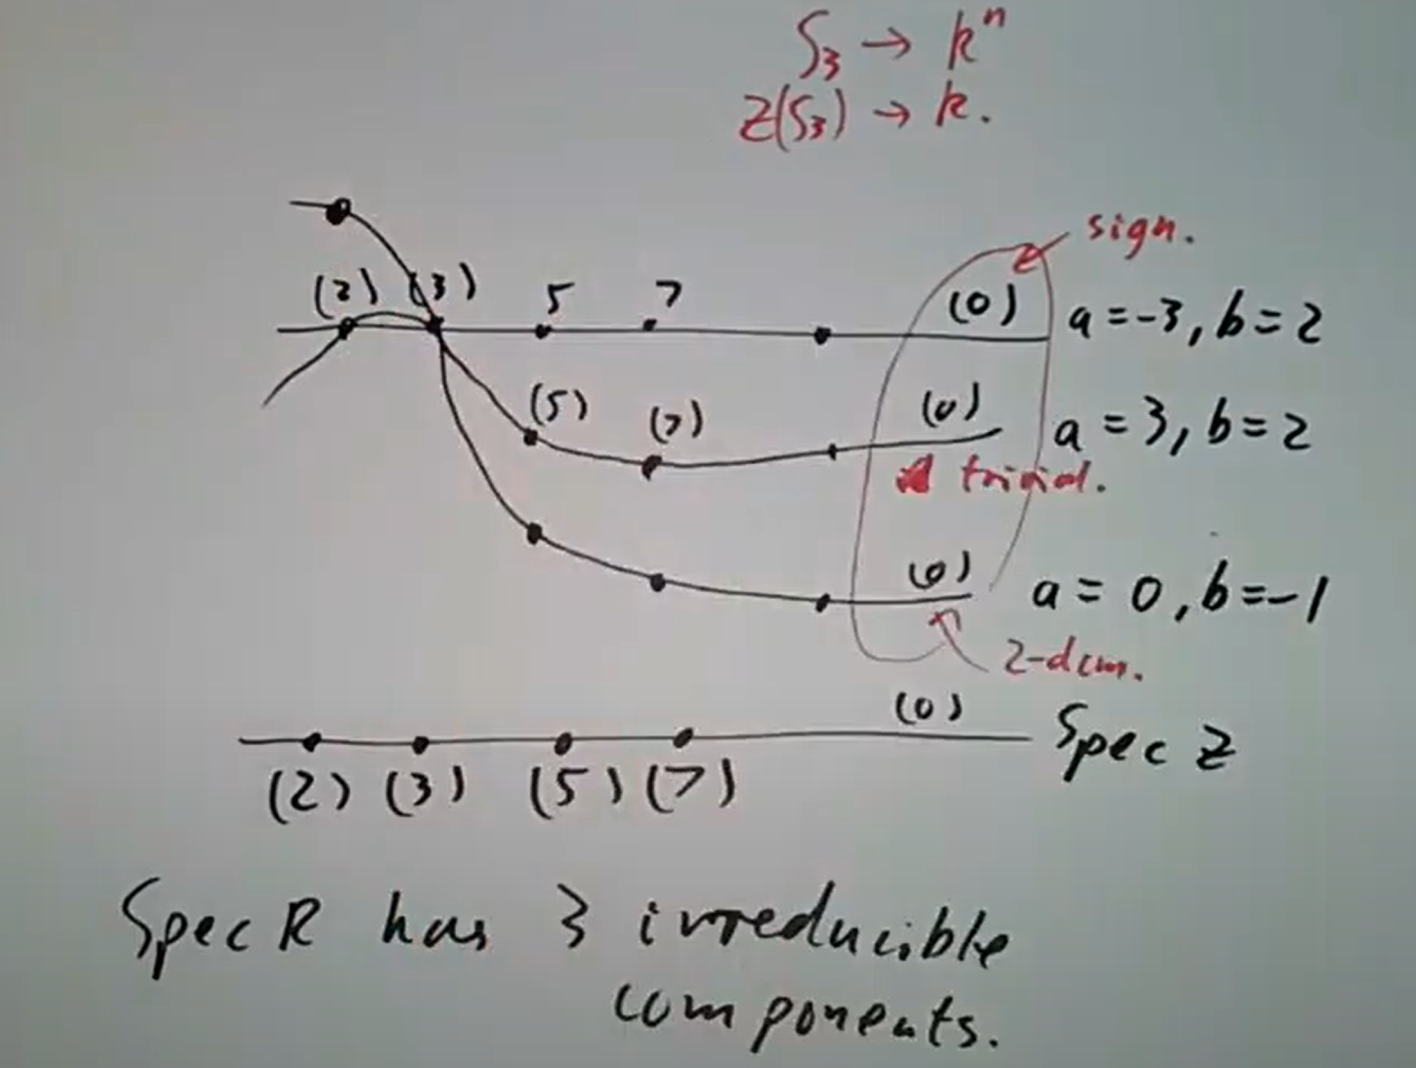 S₃ → kⁿ
Z(S₃) → k.
sign.
(2) (3) 5 7 (0) a=-3, b=2
(5) (7) (0) a=3, b=2
trivial.
(0) a=0, b=-1
2-dim.
(0) Spec Z
(2) (3) (5) (7)
Spec R has 3 irreducible
components.